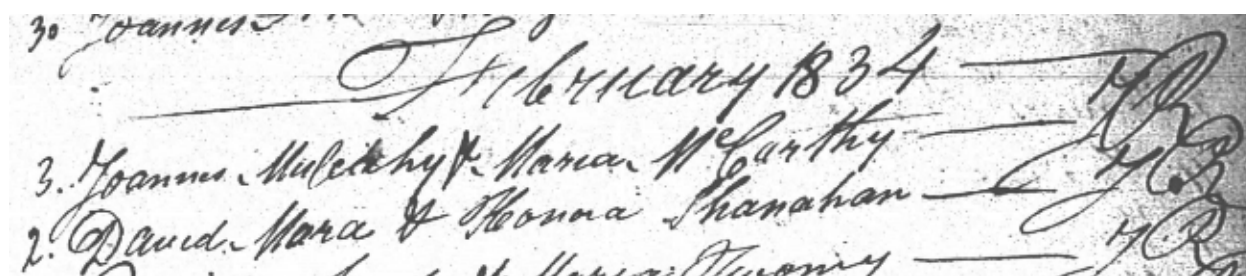 30 Joannes
February 1834
3. Joannes Mulcahy & Maria McCarthy
2. David Mara & Honora Shanahan
& Maria Twomy